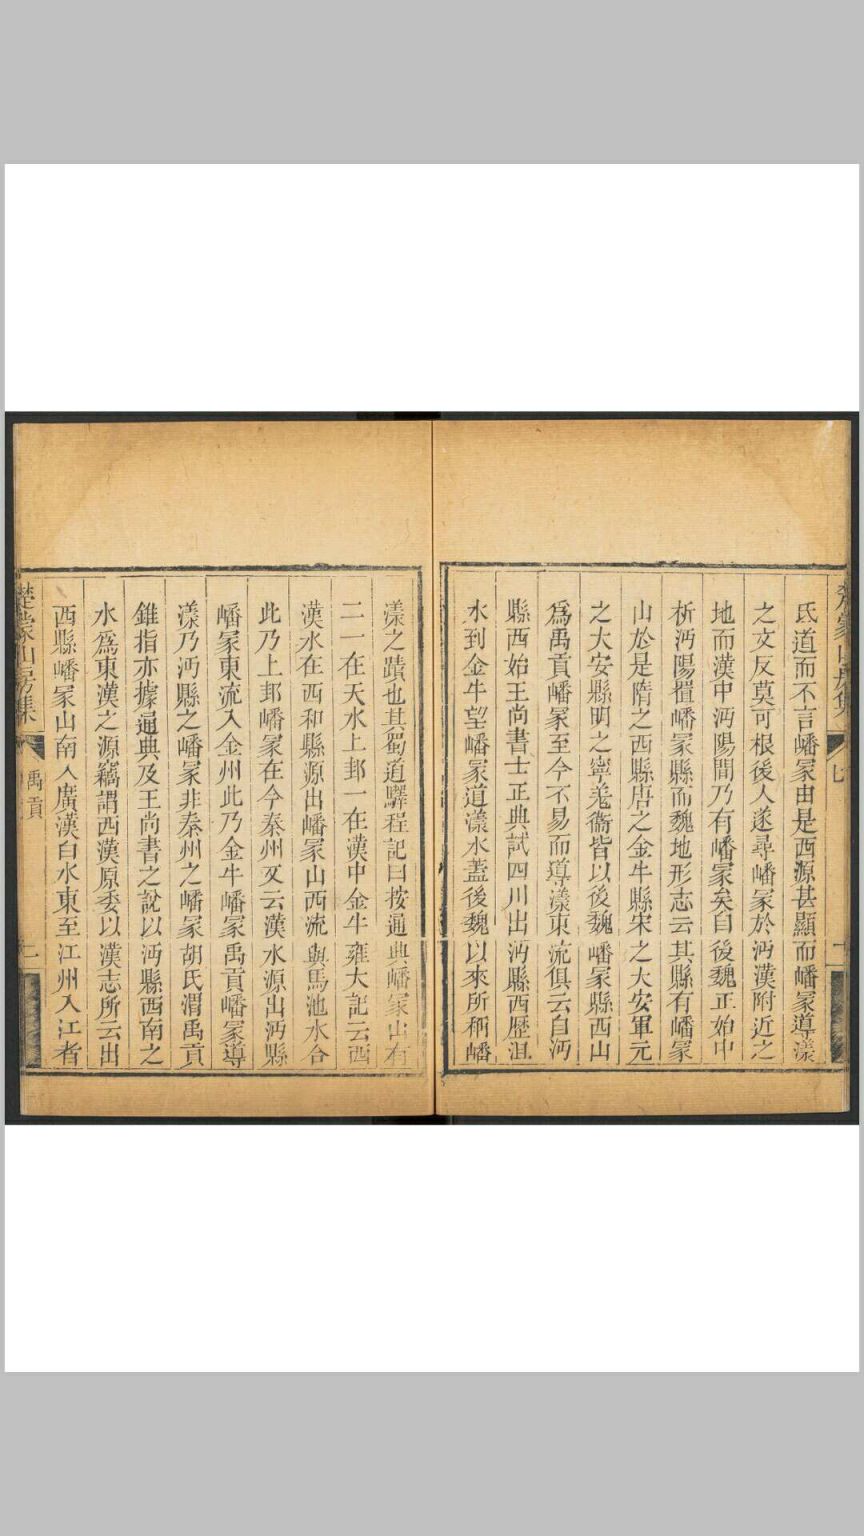 氏道而不言嶓冢由是西源甚顯而嶓冢導漾
之文反莫可根後人遂尋嶓冢於沔漢附近之
地而漢中沔陽間乃有嶓冢矣自後魏正始中
析沔陽置嶓冢縣而魏地形志云其縣有嶓冢
山於是隋之西縣唐之金牛縣宋之大安軍元
之大安縣明之寧羗衞皆以後魏嶓冢縣西山
爲禹貢嶓冢至今不易而導漾東流俱云自沔
縣西始王尚書士正典試四川出沔縣西歷沮
水到金牛望嶓冢道漾水蓋後魏以來所稱嶓
漾之蹟也其蜀道驛程記曰按通典嶓冢山有
二一在天水上邽一在漢中金牛雍大記云西
漢水在西和縣源出嶓冢山西流與馬池水合
此乃上邽嶓冢在今秦州又云漢水源出沔縣
嶓冢東流入金州此乃金牛嶓冢禹貢嶓冢導
漾乃沔縣之嶓冢非秦州之嶓冢胡氏渭禹貢
錐指亦據通典及王尚書之說以沔縣西南之
水爲東漢之源竊謂西漢原委以漢志所云出
西縣嶓冢山南入廣漢白水東至江州入江者
楚蒙山房集
禹貢